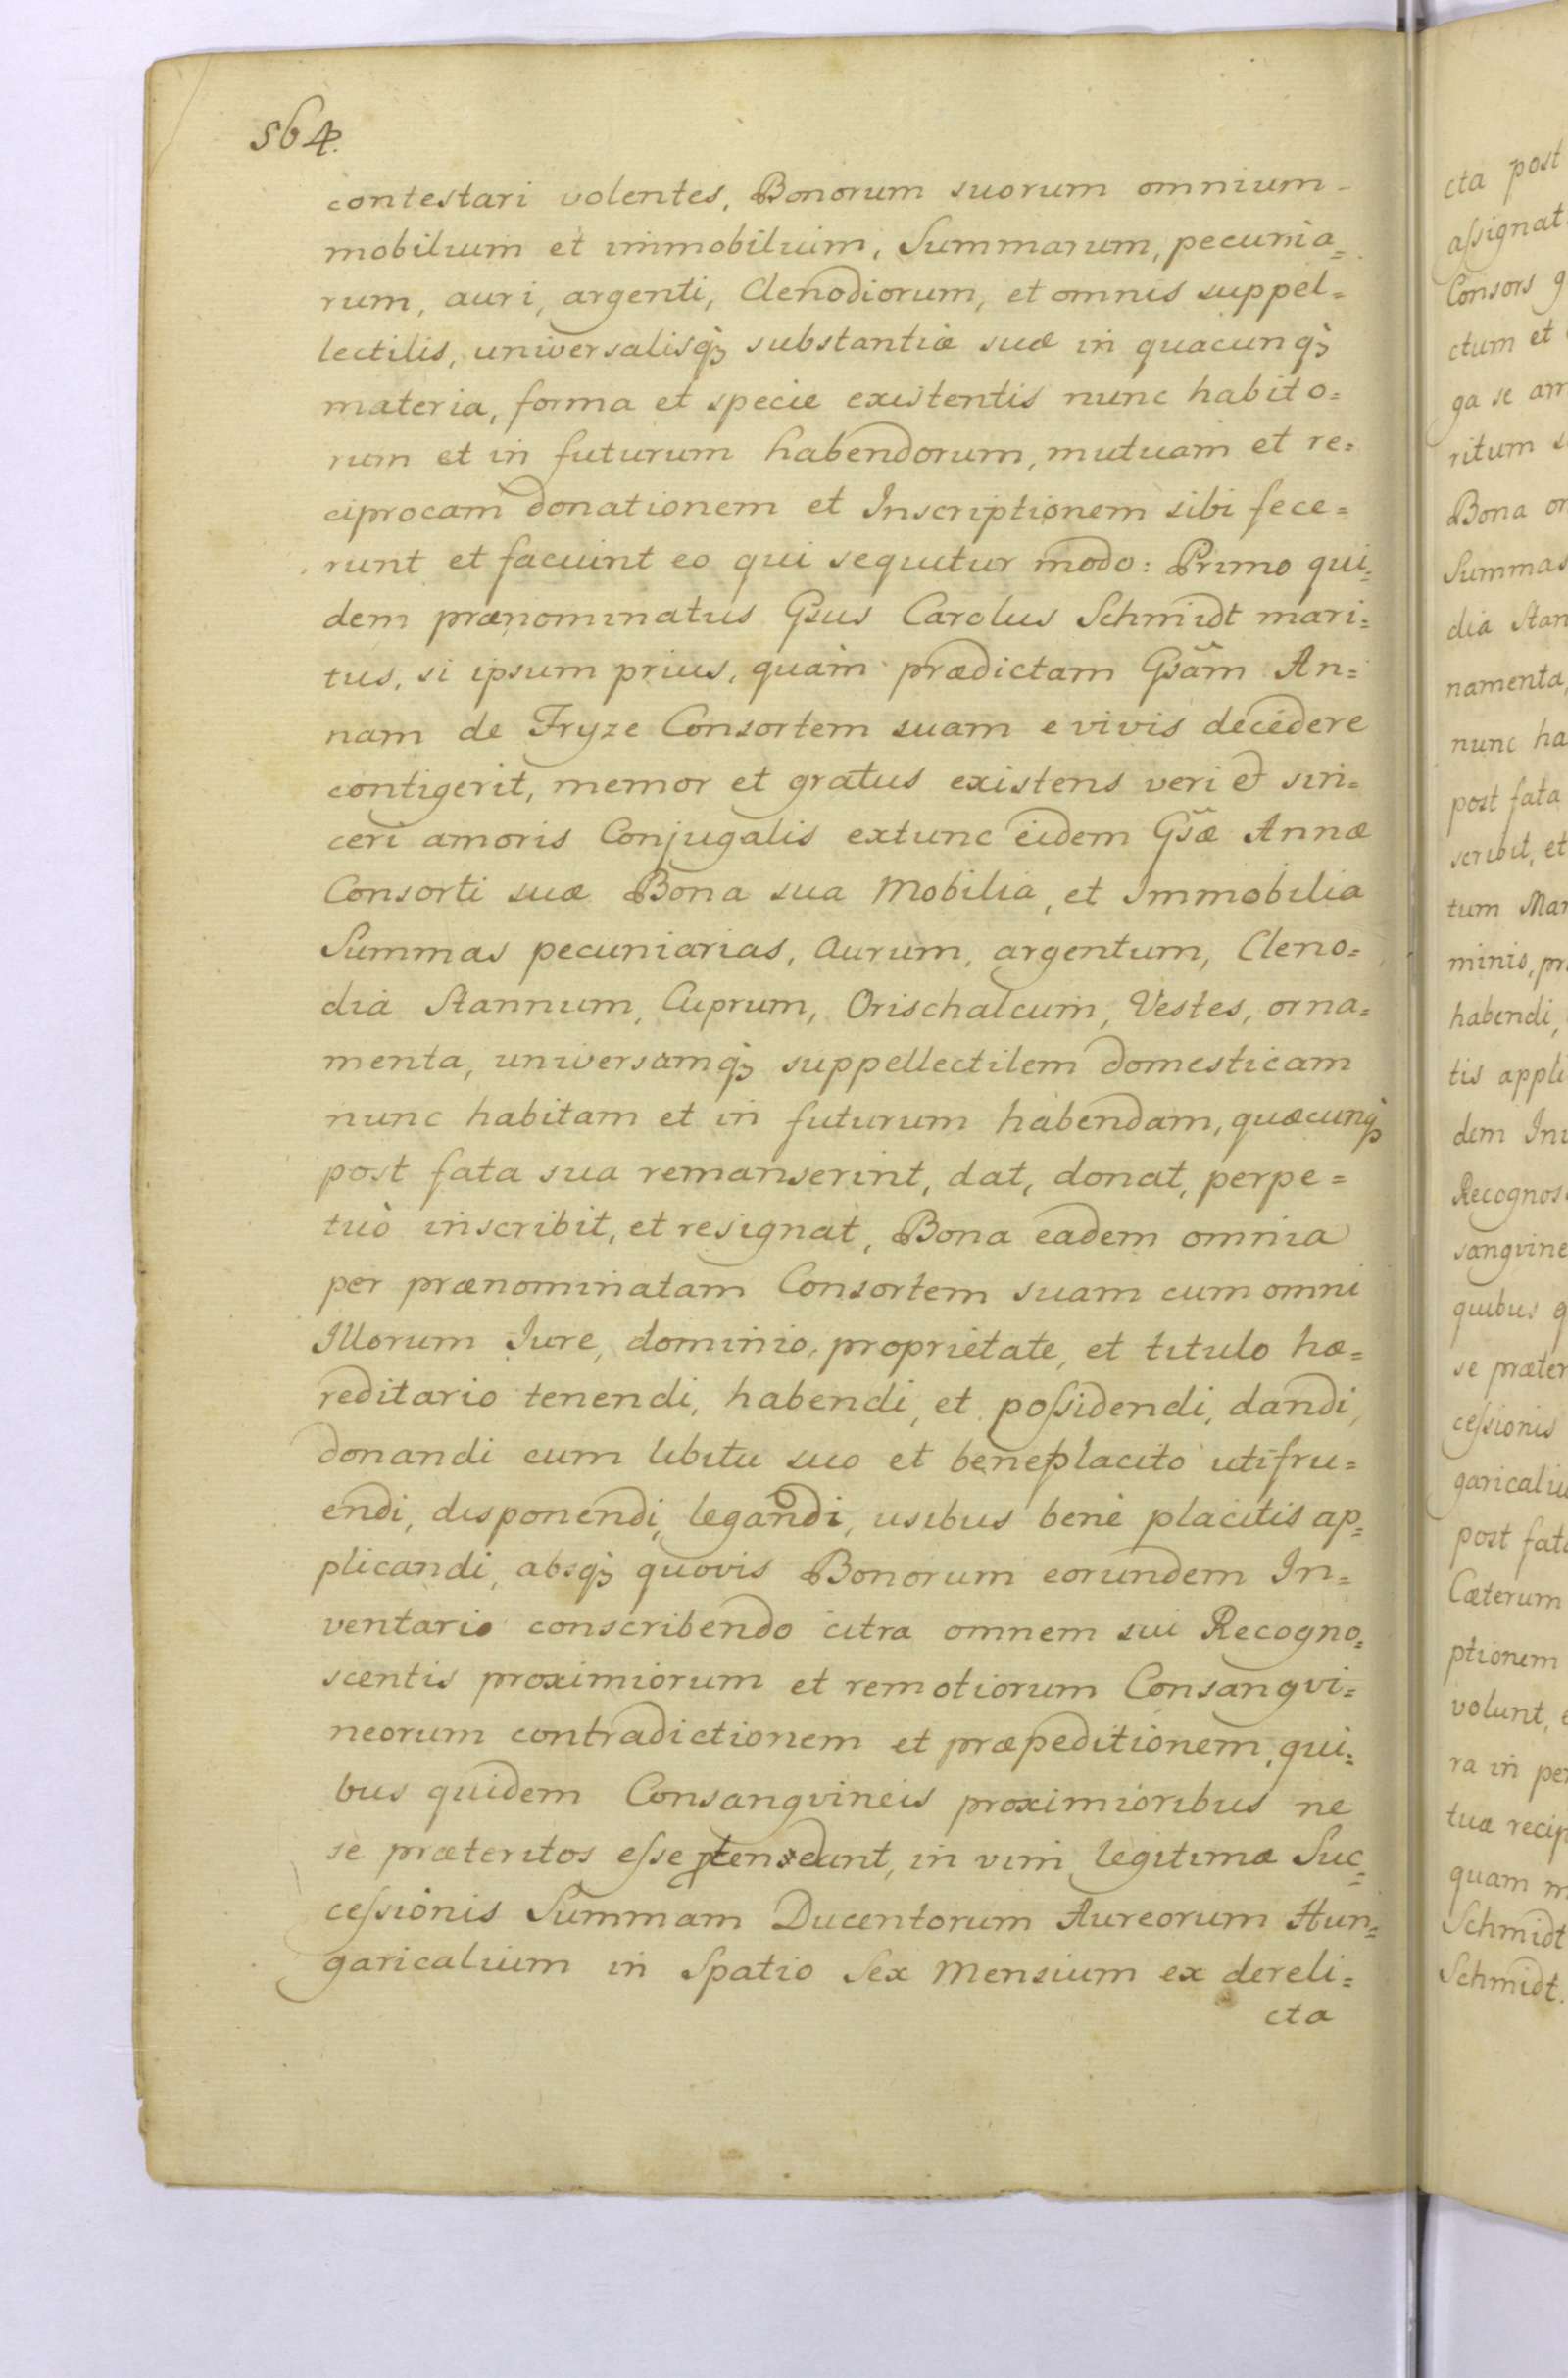 564.
contestari volentes, Bonorum suorum omnium
mobilium et immobilium, Summarum, pecunia=
rum, auri, argenti, Clenodiorum, et omnis suppel=
lectilis, universalisq3 substantiæ suæ in quacunq3
materia, forma et specie existentis nunc habito=
rum et in futurum habendorum, mutuam et re=
ciprocam donationem et Inscriptionem sibi fece=
runt et faciunt eo qui sequitur modo: Primo qui=
dem prænominatus Gsus Carolus Schmidt mari=
tus, si ipsum prius, quàm prædictam Gsãm An=
nam de Fryze Consortem suam e vivis decedere
contigerit, memor et gratus existens veri et sin=
ceri amoris Conjugalis extunc eidem Gsæ Annæ
Consorti suæ Bona sua Mobilia, et Immobilia
Summas pecuniarias, Aurum, argentum, Cleno=
dia Stannum, Cuprum, Orischalcum, Vestes, orna=
menta, universamq3 suppellectilem domesticam
nunc habitam et in futurum habendam, quæcunq3
post fata sua remanserint, dat, donat, perpe=
tuò inscribit, et resignat, Bona eadem omnia
per prænominatam Consortem suam cum omni
Illorum Jure, dominio, proprietate, et titulo hæ=
reditario tenendi, habendi, et poſsidendi, dandi,
donandi cum libitu suo et beneplacito utifru=
endi, disponendi, legandi, usibus benè placitis ap=
plicandi, absq3 quovis Bonorum eorundem In=
ventario conscribendo citra omnem sui Recogno=
scentis proximiorum et remotiorum Consangvi=
neorum contradictionem et præpeditionem, qui=
bus quidem Consangvineis proximioribus ne
se præteritos eſse
in vim legitimæ Suc=
ceſsionis Summam Ducentorum Aureorum Hun=
garicalium in Spatio Sex Mensium ex dereli=
cta
cta post
aſsignat
Consors
ctum et
ga se am
ritum
Bona
Summas
dia Stan
namenta,
nunc ha
post fata
scribit, et
tum Mar
minio, pr
habendi,
tis appli
dem In
Recognos
sangvine
quibus
se præter
ceſsionis
garicaliu
post fat
Cæterum
ptionem
volunt,
ra in per
tuæ recip
quam m
Schmidt
Schmidt.